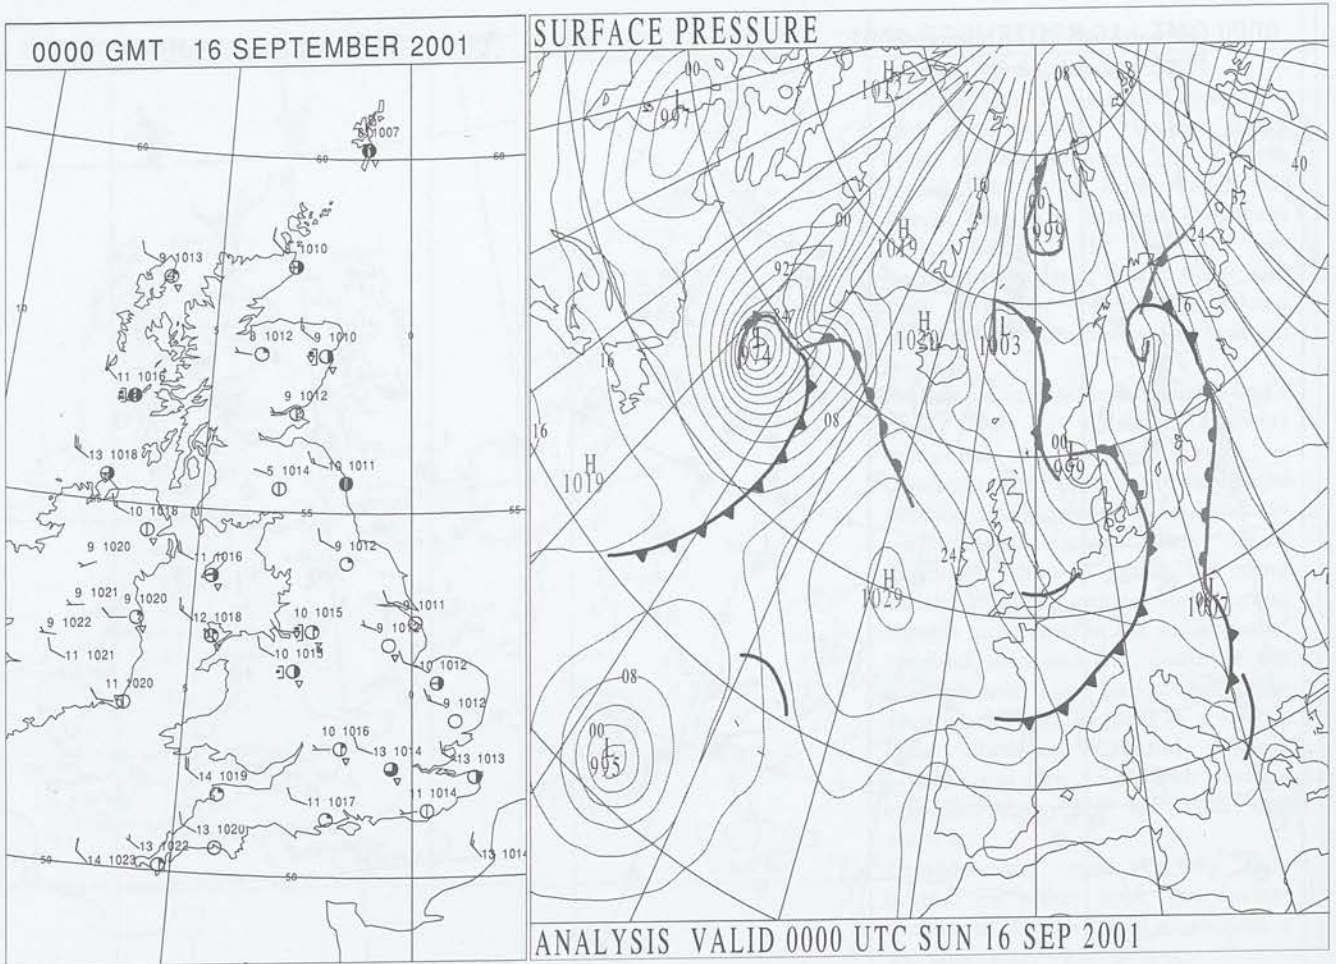 0000 GMT 16 SEPTEMBER 2001
8 1007
60
60
60
1010
9 1013
10
5
0
8 1012
9 1010
11 1016
9 1012
13 1018
5 1014
10 1011
55
55
10 1018
9 1020
11 1016
9 1012
9 1021
9 1020
9 1022
12 1018
10 1015
9 1011
11 1021
10 1012
11 1020
5
0
9 1012
10 1016
13 1014
13 1013
14 1019
11 1017
11 1014
13 1020
13 1022
14 1023
50
50
13 1014
SURFACE PRESSURE
00
L
997
H
1017
08
40
32
24
16
00
L
999
00
H
1019
92
84
L
974
H
1020
L
1003
16
16
16
08
H
1019
00
L
999
24
H
1029
L
1007
08
00
L
995
ANALYSIS VALID 0000 UTC SUN 16 SEP 2001